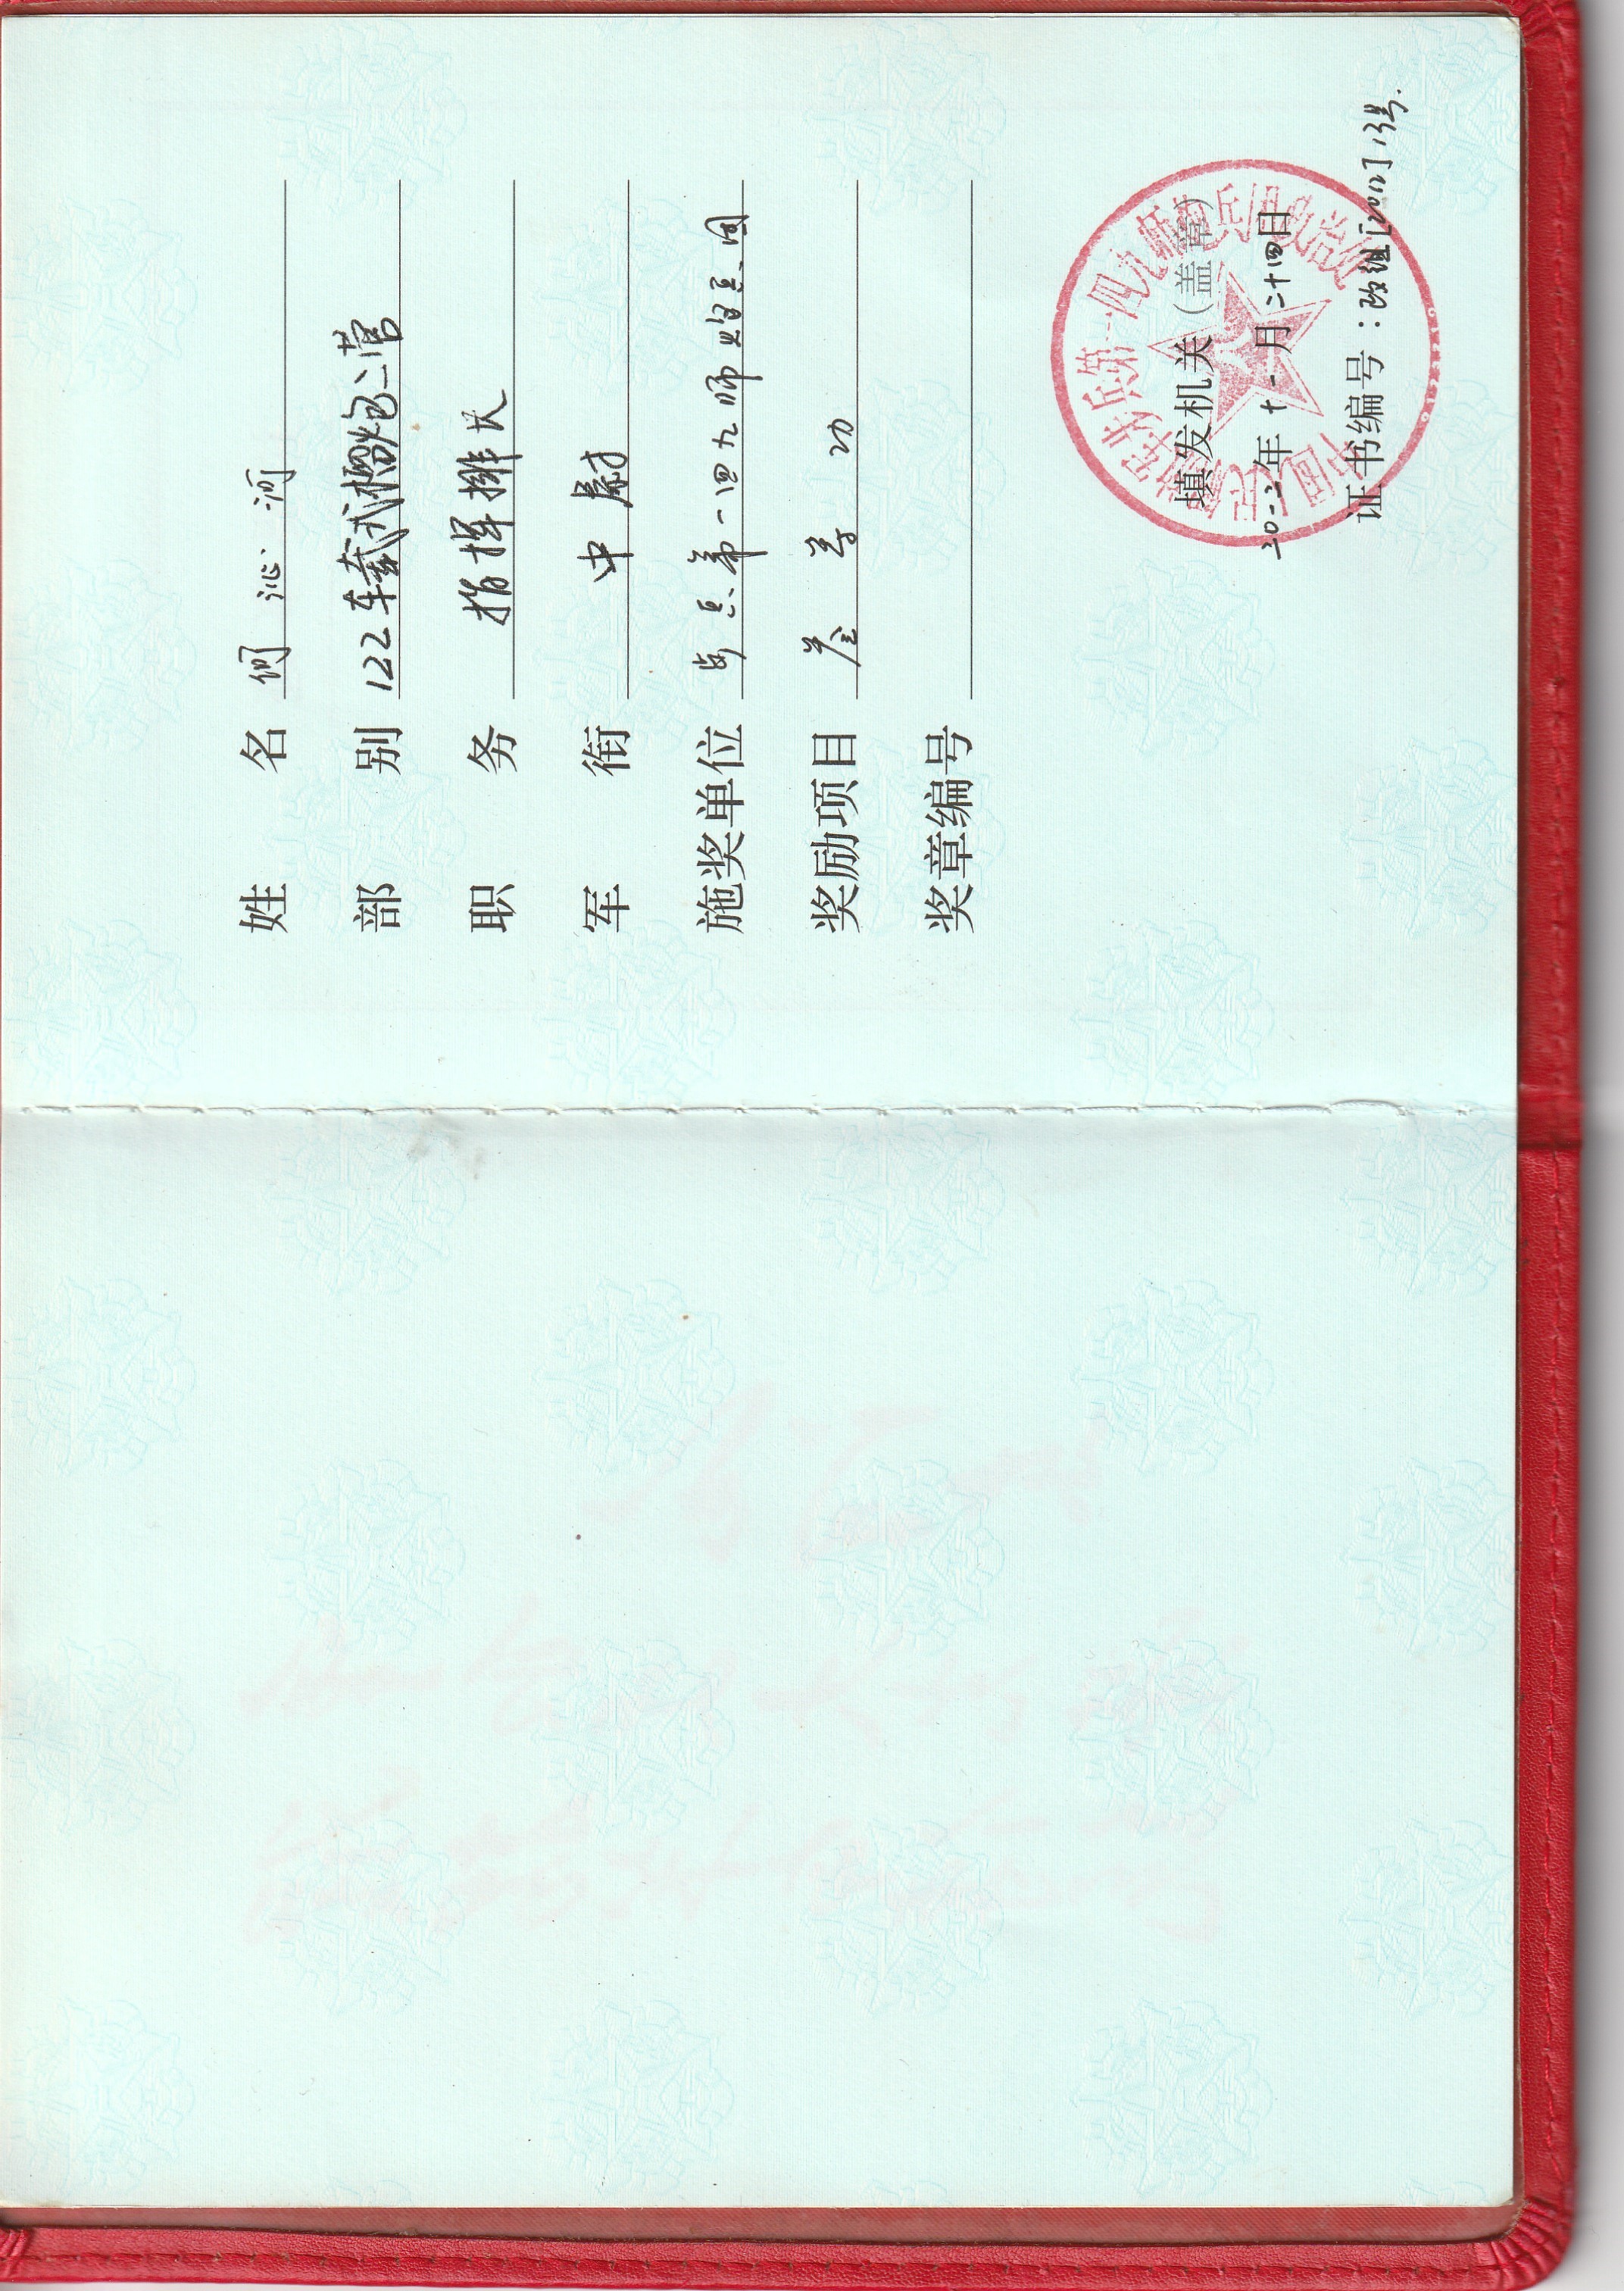 姓名 何沁河
部别 122车载式榴炮二营
职务 指挥排长
军衔 中尉
施奖单位 步兵第一四九师炮兵团
奖励项目 叁等功
奖章编号
中国人民解放军步兵第一四九师炮兵团政治处
填发机关（盖章）
二〇一二年十一月二十四日
证书编号：政组[2012]13号.